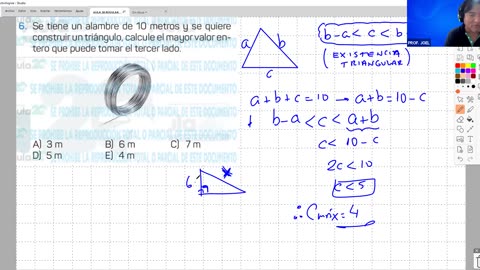 6. Se tiene un alambre de 10 metros y se quiere
construir un triángulo, calcule el mayor valor en-
tero que puede tomar el tercer lado.
A) 3 m B) 6 m C) 7 m
D) 5 m E) 4 m
a b
c
b-a < c < b
(EXISTENCIA
TRIANGULAR)
a+b+c=10 → a+b=10-c
b-a < c < a+b
c < 10-c
2c < 10
c < 5
∴ Cmáx = 4
6
x
PROF. JOEL